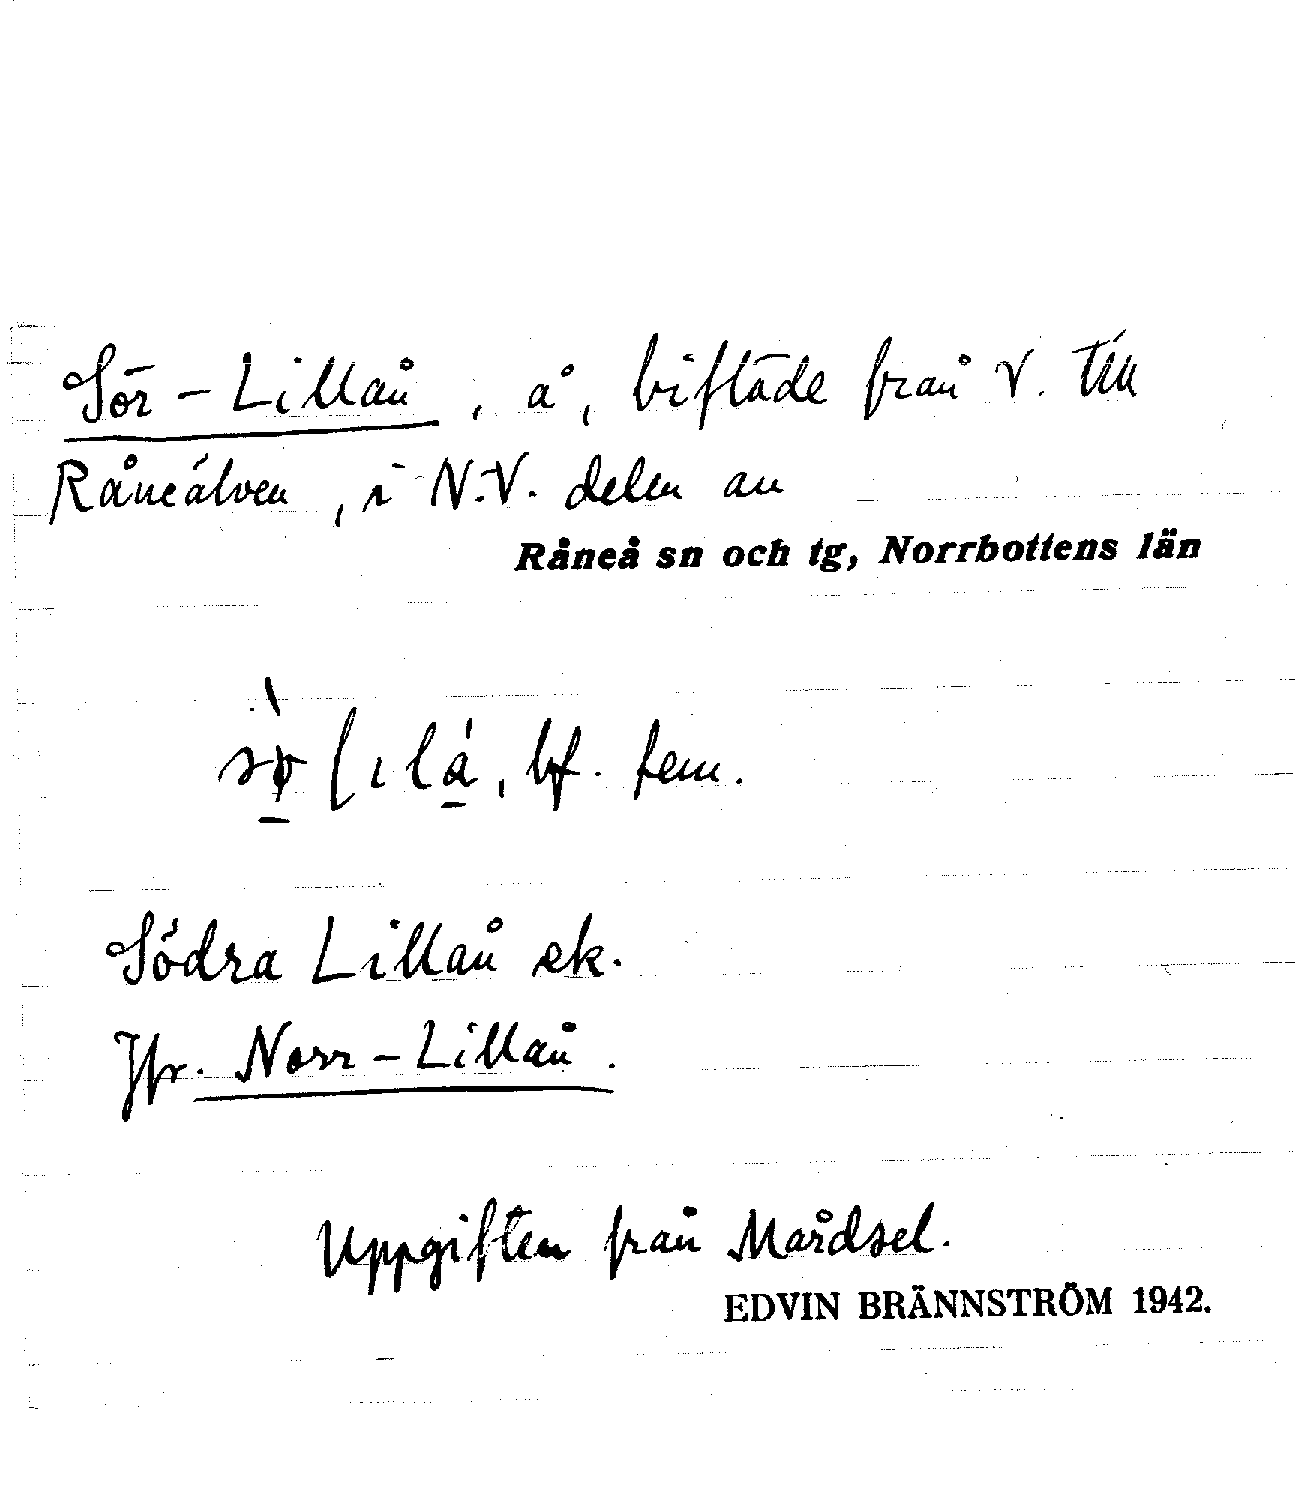 Sör-Lillån, å, biflöde från V. till
Råneälven, i N.V. delen av
Råneå sn och tg, Norrbottens län
bf. fem.
Södra Lillån ek.
Jfr. Norr-Lillån.
Uppgiften från Mårdsel.
EDVIN BRÄNNSTRÖM 1942.